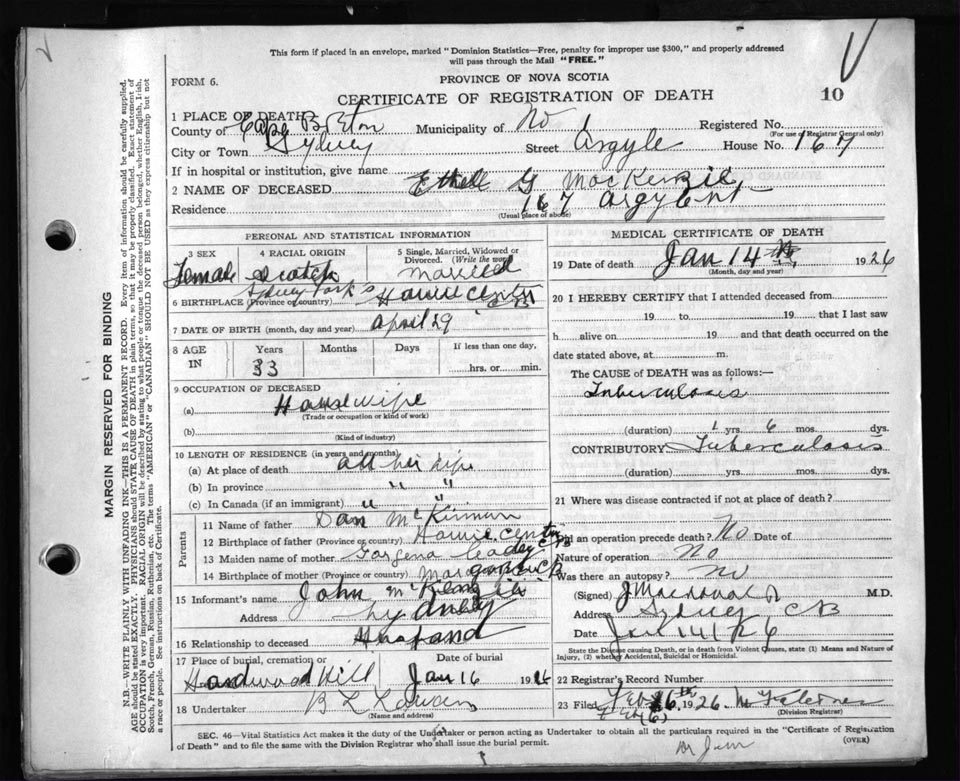 This form if placed in an envelope, marked "Dominion Statistics—Free, penalty for improper use $300," and properly addressed
will pass through the Mail "FREE."
FORM 6.
PROVINCE OF NOVA SCOTIA
CERTIFICATE OF REGISTRATION OF DEATH
10
1 PLACE OF DEATH
County of Cape Breton Municipality of No Registered No.
(For use of Registrar General only)
City or Town Sydney Street Argyle House No. 167
If in hospital or institution, give name
2 NAME OF DECEASED Ethel G MacKenzie
Residence 167 Argyle
(Usual place of abode)
PERSONAL AND STATISTICAL INFORMATION
3 SEX Female
4 RACIAL ORIGIN Scotch
5 Single, Married, Widowed or Divorced. (Write the word) Married
Sydney Forks
6 BIRTHPLACE (Province or country) Howie Centre
7 DATE OF BIRTH (month, day and year) April 29
8 AGE IN Years Months Days If less than one day,
33 hrs. or min.
9 OCCUPATION OF DECEASED
(a) Housewife
(Trade or occupation or kind of work)
(b)
(Kind of industry)
10 LENGTH OF RESIDENCE (in years and months)
(a) At place of death all her life
(b) In province " "
(c) In Canada (if an immigrant) " "
Parents
11 Name of father Dan McKinnon
12 Birthplace of father (Province or country) Howie Centre CB
13 Maiden name of mother
14 Birthplace of mother (Province or country)
15 Informant's name John McKenzie
Address Sydney
16 Relationship to deceased Husband
17 Place of burial, cremation or Date of burial
Hardwood Hill Jan 16 1926
18 Undertaker B L
(Name and address)
MEDICAL CERTIFICATE OF DEATH
19 Date of death Jan 14 th 1926
(Month, day and year)
20 I HEREBY CERTIFY that I attended deceased from
19 to 19 that I last saw
h alive on 19 and that death occurred on the
date stated above, at m.
The CAUSE of DEATH was as follows:
Tuberculosis
(duration) 1 yrs. 6 mos. dys.
CONTRIBUTORY Tuberculosis
(duration) yrs. mos. dys.
21 Where was disease contracted if not at place of death?
Did an operation precede death? No Date of
Nature of operation No
Was there an autopsy? no
(Signed) J Macdonald M.D.
Address Sydney CB
Date Jan 14 1926
State the Disease causing Death, or in death from Violent Causes, state (1) Means and Nature of
Injury, (2) whether Accidental, Suicidal or Homicidal.
22 Registrar's Record Number
23 Filed Feb 16th, 1926
Feb (6) (Division Registrar)
SEC. 46—Vital Statistics Act makes it the duty of the Undertaker or person acting as Undertaker to obtain all the particulars required in the "Certificate of Registration
of Death" and to file the same with the Division Registrar who shall issue the burial permit.
(OVER)
MARGIN RESERVED FOR BINDING
N.B.—WRITE PLAINLY WITH UNFADING INK—THIS IS A PERMANENT RECORD. Every item of information should be carefully supplied.
AGE should be stated EXACTLY. PHYSICIANS should STATE CAUSE OF DEATH in plain terms, so that it may be properly classified. Exact statement of
OCCUPATION is very important. RACIAL ORIGIN will be described by stating to what people or tongue the deceased person belonged, whether English, Irish,
Scotch, French, German, Russian, Ruthenian, etc. The terms "AMERICAN" or "CANADIAN" SHOULD NOT BE USED as they express citizenship but not
a race or people. See instructions on back of Certificate.